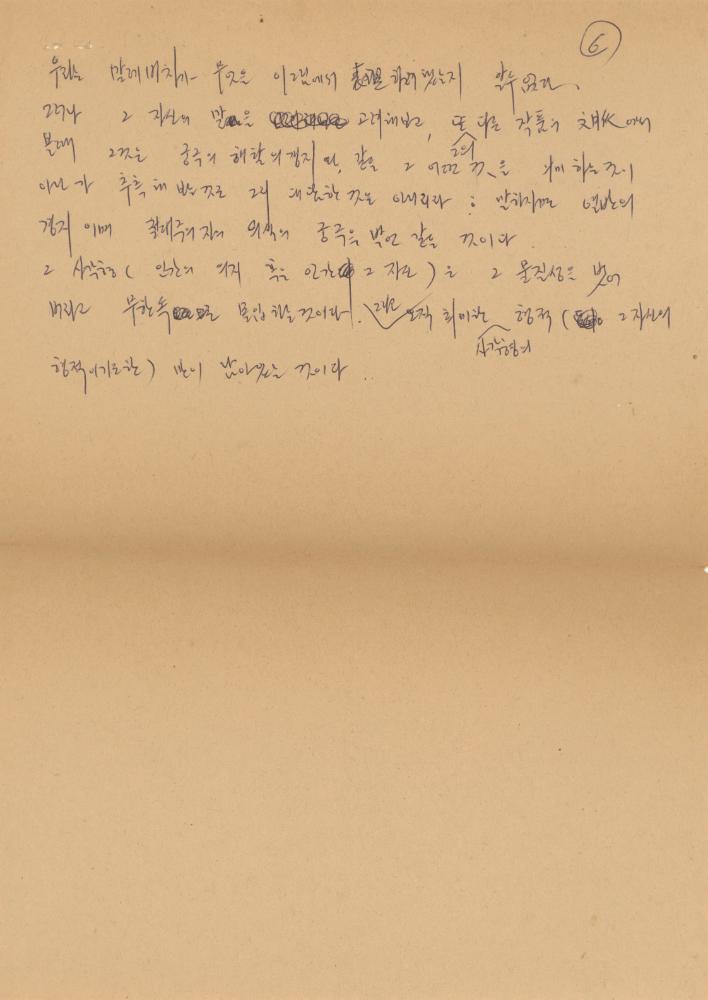 6
우리는 말레비치가 무엇을 이그림에서 表現하려했는지 알수 없다.
그러나 그 자신의 말을 고려해보고, 또 그의 다른 작품의 文脈에서
볼때 그것은 궁극의 해탈의경지와, 같은 그 어떤 것을 의미하는것이
아닌가 추측해 봄직도 그리 대담한 것은 아니리라 : 말하자면 열반의
경지이며 절대주의자의 의식의 궁극을 같은 것이다
그 사각형(인간의 의지 혹은 인간 그 자도)은 그 물질성을 벗어
버리고 무한속으로 몰입하는것이다. 그리고 오직 희미한 사각형의 형적( 그 자신의
형적이기도한) 만이 남아있는 것이다.